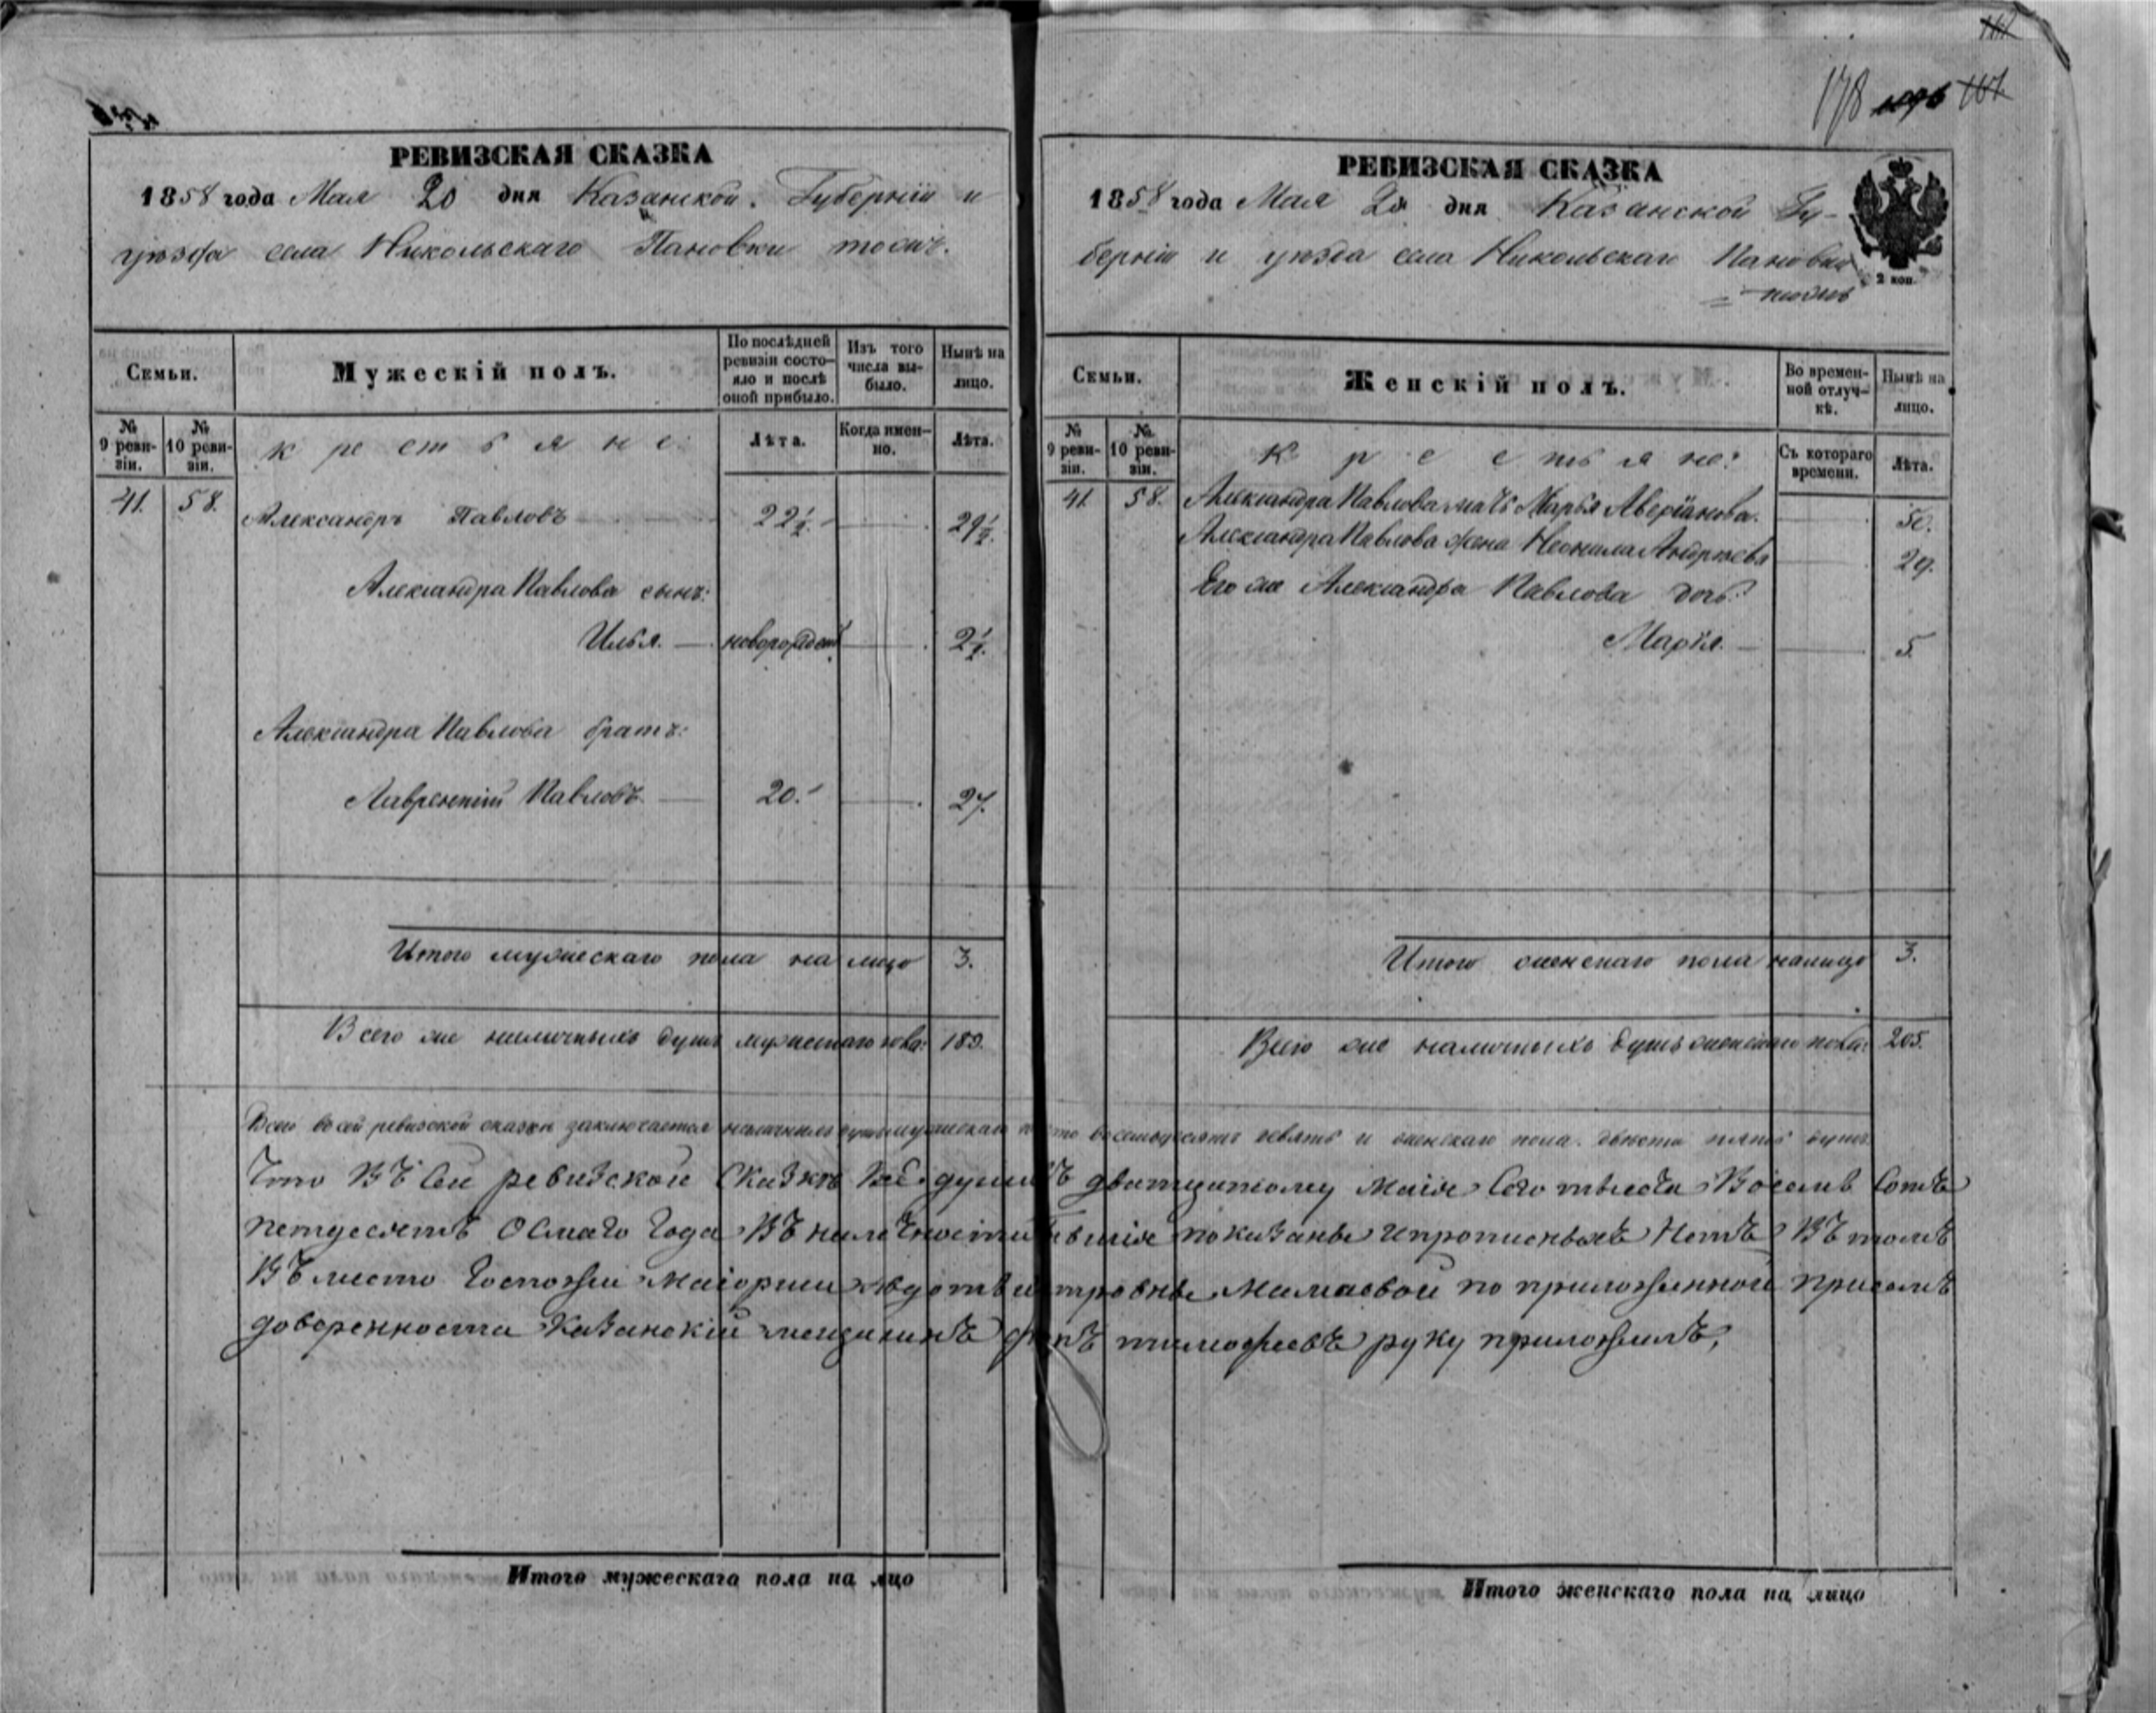 178
РЕВИЗСКАЯ СКАЗКА
1858 года Мая 20 дня Казанской Губерніи и
уѣзда села Никольскаго Пановки тожъ.
Семьи.
Мужескій полъ.
По послѣдней ревизіи состояло и послѣ оной прибыло.
Изъ того числа выбыло.
Нынѣ на лицо.
№ 9 ревизіи.
№ 10 ревизіи.
крестьяне:
Лѣта.
Когда именно.
Лѣта.
41. 58. Александръ Павловъ 22½. 29½.
Александра Павлова сынъ:
Илья. новорожден 2½.
Александра Павлова братъ:
Лаврентій Павловъ 20. 27.
Итого мужескаго пола на лицо 3.
Всего же наличныхъ душъ мужескаго пола: 189.
РЕВИЗСКАЯ СКАЗКА
1858 года Мая 20 дня Казанской Гу-
берніи и уѣзда села Никольскаго Пановки
тожъ
2 коп.
Семьи.
Женскій полъ.
Во временной отлучкѣ.
Нынѣ на лицо.
№ 9 ревизіи.
№ 10 ревизіи.
Крестьяне:
Съ котораго времени.
Лѣта.
41. 58. Александра Павлова мать Марья Аверіанова. 50.
Александра Павлова жена Неонила Андреева 29.
Его же Александра Павлова дочь:
Марія. 5.
Итого женскаго пола налицо 3.
Всего же наличныхъ душъ женскаго пола: 205.
Всего въ сей ревизской сказки заключается наличныхъ душъ мужескаго сто восемьдесятъ девять и женскаго пола двѣсти пять душъ.
Что въ Сей ревизской Сказкѣ Всѣ души къ дватцатому Маія Сего тысеча Восемь Сотъ
петдесятъ Осмаго Года Въ наличности показаны и прописныхъ Нетъ Въ томъ
Въ место Госпожи Маіорши Мамаевой по приложенной присемъ
доверенности Казанскій мещанинъ тимофеевъ руку приложилъ,
Итого мужескаго пола на лцо
Итого женскаго пола на лицо